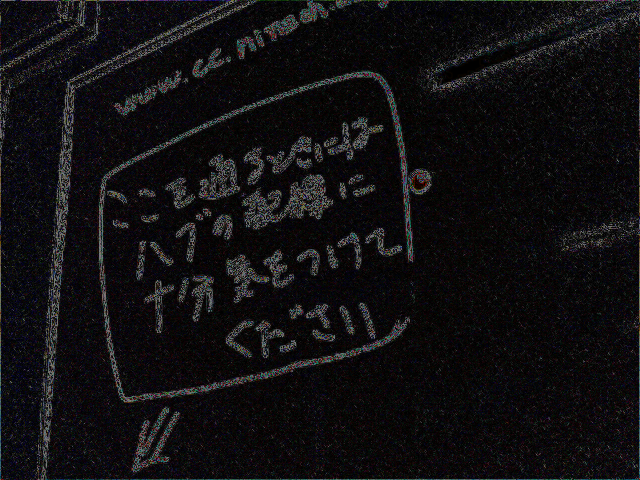 www.cc.nitech.
ここを通るときには
ハブや配線に
十分気をつけて
ください